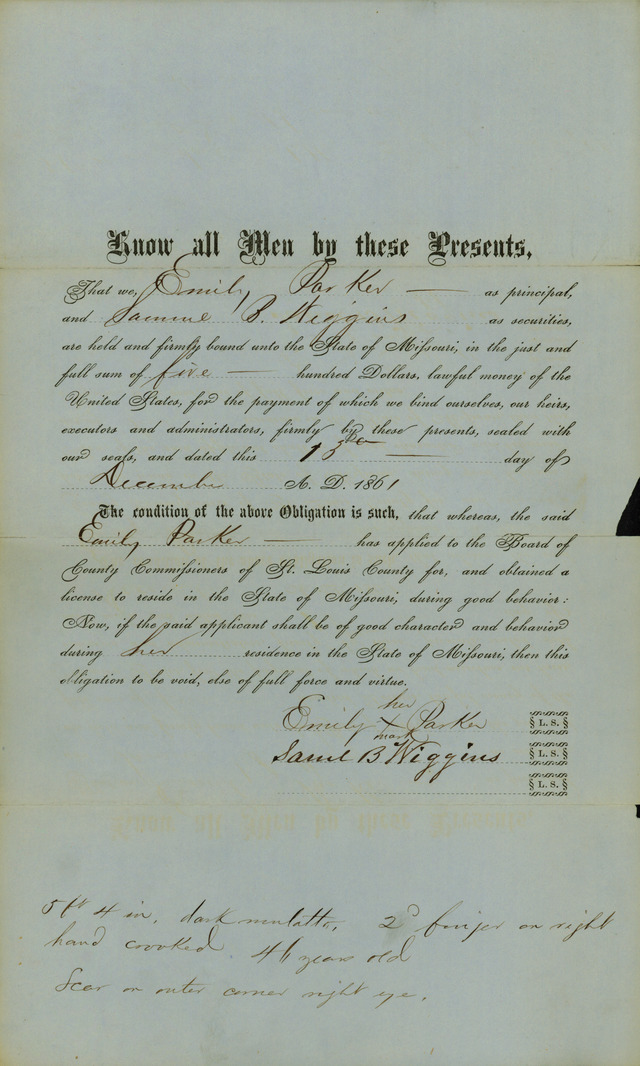 Know all Men by these Presents,
That we, Emily Parker — as principal,
and Samuel B. Wiggins as securities,
are held and firmly bound unto the State of Missouri, in the just and
full sum of five — hundred Dollars, lawful money of the
United States, for the payment of which we bind ourselves, our heirs,
executors and administrators, firmly by these presents, sealed with
our seals, and dated this 13th — day of
December A. D. 1861
The condition of the above Obligation is such, that whereas, the said
Emily Parker — has applied to the Board of
County Commissioners of St. Louis County for, and obtained a
license to reside in the State of Missouri, during good behavior:
Now, if the said applicant shall be of good character and behavior
during her residence in the State of Missouri, then this
obligation to be void, else of full force and virtue.
her
Emily X Parker § L. S. §
mark
Saml B Wiggins § L. S. §
§ L. S. §
5 ft 4 in. dark mulatto, 2d finger on right
hand crooked. years old
Scar on outer corner right eye.